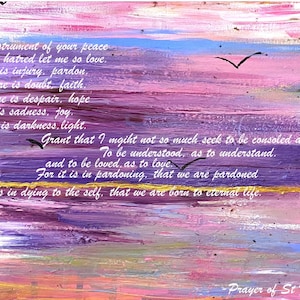 strument of your peace
hatred let me so love.
is injury, pardon,
e is doubt, faith,
e is despair, hope
is sadness, joy.
is darkness,light.
Grant that I mgiht not so much seek to be consoled a
To be understood, as to understand.
and to be loved,as to love
For it is in pardoning, that we are pardoned
s in dying to the self, that we are born to eternal life.
Prayer of St